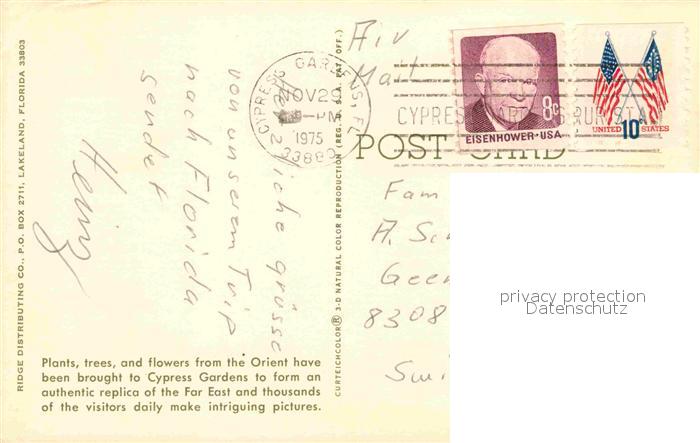 RIDGE DISTRIBUTING CO., P.O. BOX 2711, LAKELAND, FLORIDA 33803
Herzliche grüsse
von unserem Trip
nach Florida
sendet
Plants, trees, and flowers from the Orient have
been brought to Cypress Gardens to form an
authentic replica of the Far East and thousands
of the visitors daily make intriguing pictures.
CURTEICHCOLOR® 3-D NATURAL COLOR REPRODUCTION (REG. U.S.A. PAT. OFF.)
Air
Mail
CYPRESS GARDENS, FL
NOV 29
PM
1975
33880
8c
EISENHOWER·USA
UNITED 10c STATES
POST CARD
Fam
A.
8308
privacy protection
Datenschutz